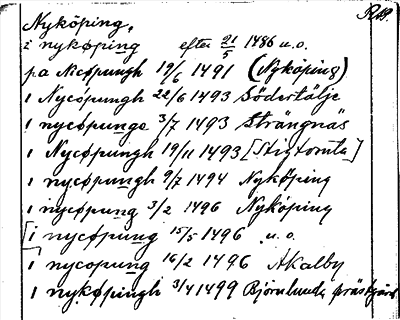 RA.
Nyköping.
i nykøping efter 21/5 1486 u.o.
pa Nicópungh 19/6 1491 (Nyköping)
i Nycópungh 22/6 1493 Södertälje
i nycópunge 3/7 1493 Strängnäs
i Nycøpungh 19/11 1493 [Stigtomta]
i nycøpungh 9/7 1494 Nyköping
i nycøpung 3/2 1496 Nyköping
[i nycøpung 15/5 1496 u.o.
i nycopung 16/2 1496 Åkalby
i nykøpingh 3/4 1499 Björnlunda prästgård